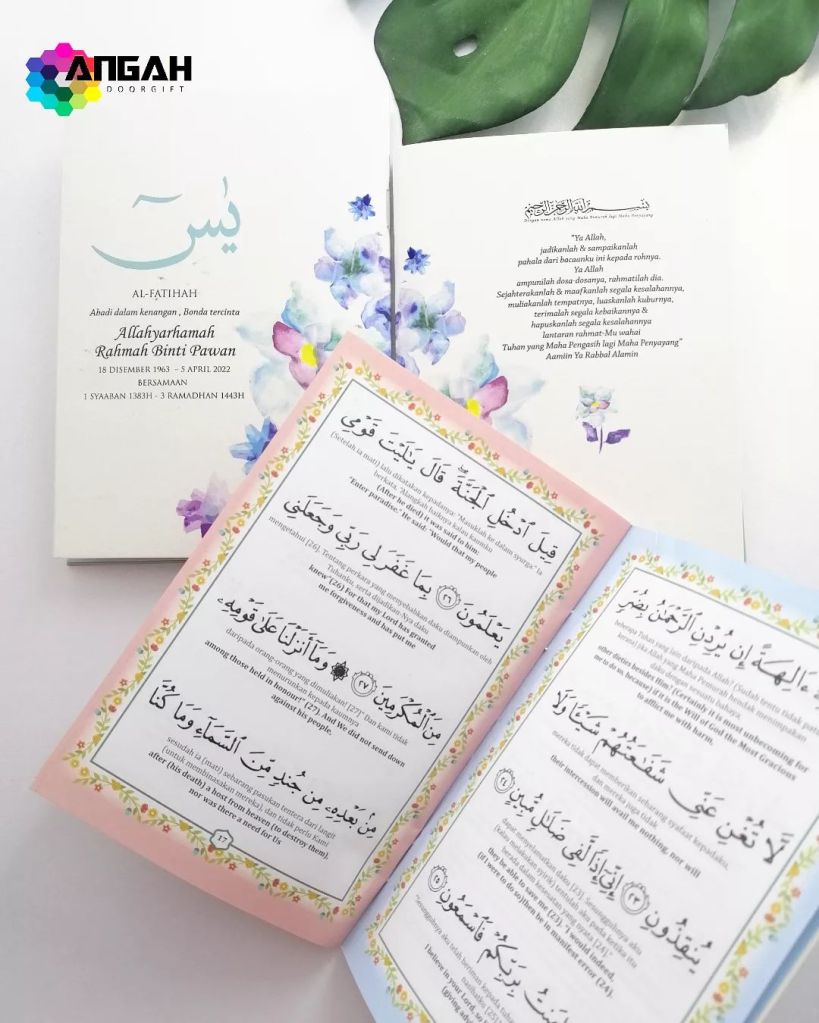 ANGAH
DOORGIFT
يسٓ
AL-FATIHAH
Abadi dalam kenangan , Bonda tercinta
Allahyarhamah
Rahmah Binti Pawan
18 DISEMBER 1963 - 5 APRIL 2022
BERSAMAAN
1 SYAABAN 1383H - 3 RAMADHAN 1443H
بسم الله الرحمن الرحيم
Dengan nama Allah yang Maha Pemurah lagi Maha Penyayang
"Ya Allah,
jadikanlah & sampaikanlah
pahala dari bacaanku ini kepada rohnya.
Ya Allah
ampunilah dosa-dosanya, rahmatilah dia.
Sejahterakanlah & maafkanlah segala kesalahannya,
muliakanlah tempatnya, luaskanlah kuburnya,
terimalah segala kebaikannya &
hapuskanlah segala kesalahannya
lantaran rahmat-Mu wahai
Tuhan yang Maha Pengasih lagi Maha Penyayang"
Aamiin Ya Rabbal Alamin
قِيلَ ٱدْخُلِ ٱلْجَنَّةَ ۖ قَالَ يَٰلَيْتَ قَوْمِى
(Setelah ia mati) lalu dikatakan kepadanya: "Masuklah ke dalam syurga" Ia
berkata, "Alangkah baiknya kalau kaumku
(After he died) it was said to him:
"Enter paradise." He said: "Would that my people
يَعْلَمُونَ ٢٦ بِمَا غَفَرَ لِى رَبِّى وَجَعَلَنِى
mengetahui [26]. Tentang perkara yang menyebabkan daku diampunkan oleh
Tuhanku, serta dijadikan-Nya daku
knew"(26) For that my Lord has granted
me forgiveness and has put me
مِنَ ٱلْمُكْرَمِينَ ٢٧ ۞ وَمَآ أَنزَلْنَا عَلَىٰ قَوْمِهِۦ
daripada orang-orang yang dimuliakan! [27]" Dan kami tidak
menurunkan kepada kaumnya
among those held in honour!" (27). And We did not send down
against his people.
مِنۢ بَعْدِهِۦ مِن جُندٍ مِّنَ ٱلسَّمَآءِ وَمَا كُنَّا
sesudah ia [mati] sebarang pasukan tentera dari langit
(untuk membinasakan mereka), dan tidak perlu Kami
after (his death) a host from heaven (to destroy them),
nor was there a need for Us
17
ءَالِهَةً إِن يُرِدْنِ ٱلرَّحْمَٰنُ بِضُرٍّ
beberapa Tuhan yang lain daripada Allah? (Sudah tentu tidak
kerana) jika Allah yang Maha Pemurah hendak menimpakan
daku dengan sesuatu bahaya,
other dieties besides him? (Certainly it is most unbecoming for
me to do so, because) if it is the Will of God the Most Gracious
to afflict me with harm,
لَّا تُغْنِ عَنِّى شَفَٰعَتُهُمْ شَيْـًٔا وَلَا
mereka tidak dapat memberikan sebarang syafaat kepadaku,
dan mereka juga tidak
their intercession will avail me nothing, nor will
يُنقِذُونِ ٢٣ إِنِّىٓ إِذًا لَّفِى ضَلَٰلٍ مُّبِينٍ ٢٤
dapat menyelamatkan daku [23]. Sesungguhnya aku
(kalau melakukan syirik) tentulah aku pada ketika itu
berada dalam kesesatan yang nyata [24]."
they be able to save me (23). "I would indeed,
(if I were to do so)then be in manifest error (24).
بِرَبِّكُمْ فَٱسْمَعُونِ ٢٥
"Sesungguhnya aku telah beriman kepada
nasihatku [25]
I believe in your Lord, so
(giving